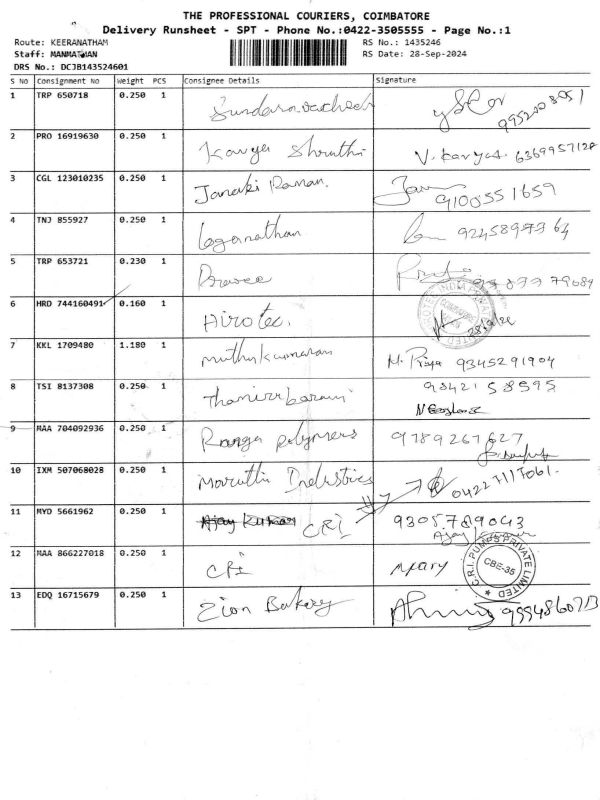 THE PROFESSIONAL COURIERS, COIMBATORE
Delivery Runsheet - SPT - Phone No.:0422-3505555 - Page No.:1
Route: KEERANATHAM RS No.: 1435246
Staff: MANMATHAN RS Date: 28-Sep-2024
DRS No.: DCJB143524601
S No Consignment No Weight PCS Consignee Details Signature
1 TRP 650718 0.250 1
2 PRO 16919630 0.250 1 Kavya Shruthi V. Kavya. 6369957128
3 CGL 123010235 0.250 1 Janaki Raman. 9100551659
4 TNJ 855927 0.250 1 Loganathan
5 TRP 653721 0.230 1
6 HRD 744160491 0.160 1 Airotec.
7 KKL 1709480 1.180 1 muthukumaran M. Priya 9345291904
8 TSI 8137308 0.250 1 9342158595
9 MAA 704092936 0.250 1 Ranga polymers 9789267627
10 IXM 507068028 0.250 1 Maruthi Industries 04227117061.
11 MYO 5661962 0.250 1 Ajay Kumar CRI 9305789043
Ajay Kumar
12 MAA 866227018 0.250 1 CRI Mary
C.R.I. PUMPS PRIVATE LIMITED
CBE-35
13 EDQ 16715679 0.250 1 Zion Bakery